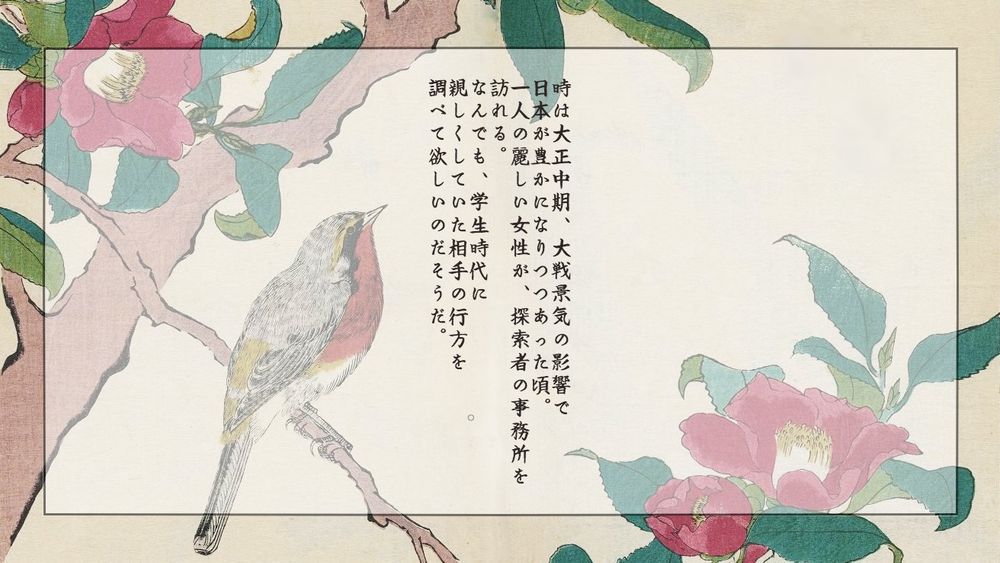 時は大正中期、大戦景気の影響で
日本が豊かになりつつあった頃。
一人の麗しい女性が、探索者の事務所を
訪れる。
なんでも、学生時代に
親しくしていた相手の行方を
調べて欲しいのだそうだ。